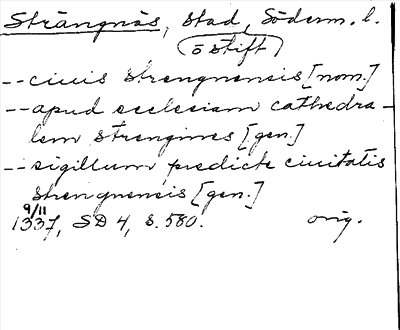 Strängnäs, stad, Söderm. l.
(ö stift)
-- ciuis strengnensis [nom.]
-- apud ecclesiam cathedra-
lem strengines [gen.]
-- sigillum predicte ciuitatis
strengnensis [gen.]
9/11
1337, SD 4, s. 580. orig.